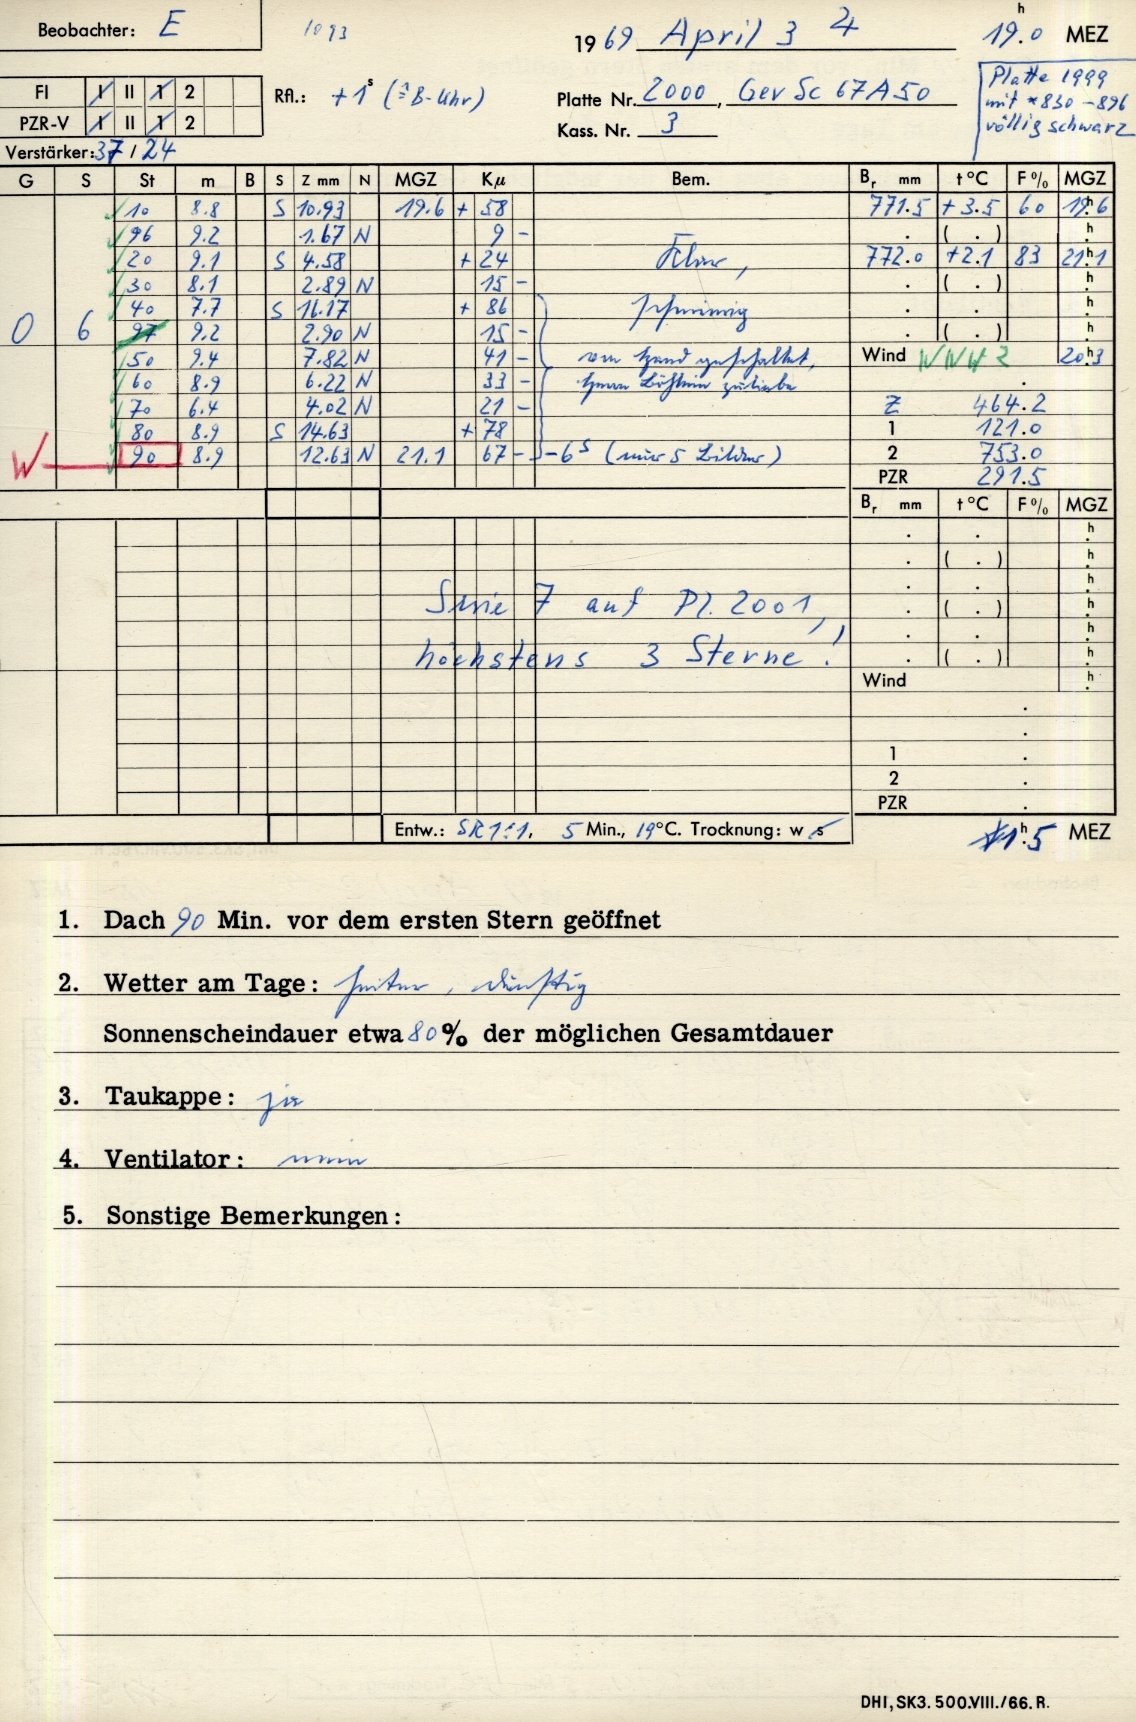 Beobachter: E 1093 1969 April 3 4 19h.0 MEZ
FI I II 1 2
PZR-V I II 1 2
Rfl.: +1s (≙B-Uhr)
Platte Nr. 2000, Gev Sc 67A50
Kass. Nr. 3
Platte 1999
mit *830-896
völlig schwarz
Verstärker: 37 / 24
G S St m B S Z mm N MGZ Kμ Bem. Br mm t°C F% MGZ
10 8.8 S 10.93 19.6 + 58 771.5 +3.5 60 19h.6
96 9.2 1.67 N 9 - . ( . ) h
20 9.1 S 4.58 + 24 Klar, 772.0 +2.1 83 21h.1
30 8.1 2.89 N 15 - . ( . ) h
40 7.7 S 16.17 + 86 . . h
0 6 97 9.2 2.90 N 15 - . ( . ) h
50 9.4 7.82 N 41 - von Hand geschaltet, Wind WNW 2 20h.3
60 8.9 6.22 N 33 - Herrn zuliebe .
70 6.4 4.02 N 21 - Z 464.2
80 8.9 S 14.63 + 78 1 121.0
W 90 8.9 12.63 N 21.1 67 - -6s (nur 5 Bilder) 2 753.0
PZR 291.5
Br mm t°C F% MGZ
. . h
. ( . ) h
. . h
Serie 7 auf Pl. 2001, . ( . ) h
. . h
höchstens 3 Sterne! . ( . ) h
Wind h
.
.
1 .
2 .
PZR .
Entw.: SR 1:1, 5 Min., 19°C. Trocknung: w s 1h.5 MEZ
1. Dach 90 Min. vor dem ersten Stern geöffnet
2. Wetter am Tage: heiter, dunstig
Sonnenscheindauer etwa 80% der möglichen Gesamtdauer
3. Taukappe: ja
4. Ventilator: nein
5. Sonstige Bemerkungen:
DHI, SK3. 500.VIII./66. R.